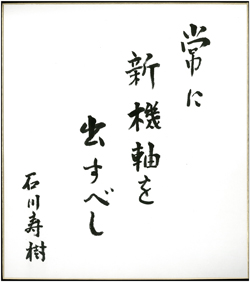 常に
新機軸を
出すべし
石川寿樹